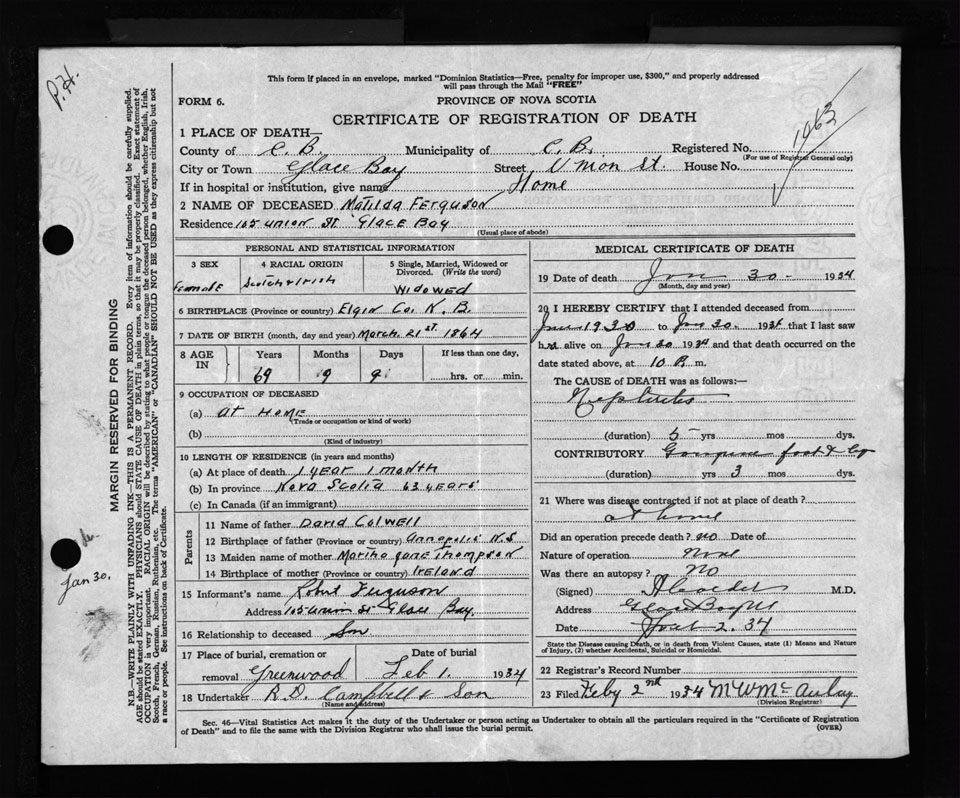 P.H.
This form if placed in an envelope, marked "Dominion Statistics—Free, penalty for improper use, $300," and properly addressed
will pass through the Mail "FREE"
FORM 6.
PROVINCE OF NOVA SCOTIA
CERTIFICATE OF REGISTRATION OF DEATH
1963
1 PLACE OF DEATH—
County of C. B. Municipality of C. B. Registered No.
(For use of Registrar General only)
City or Town Glace Bay Street, Union St. House No.
If in hospital or institution, give name Home
2 NAME OF DECEASED Matilda Ferguson
Residence 105 Union St Glace Bay
(Usual place of abode)
PERSONAL AND STATISTICAL INFORMATION
3 SEX 4 RACIAL ORIGIN 5 Single, Married, Widowed or
Divorced. (Write the word)
Female Scotch & Irish Widowed
6 BIRTHPLACE (Province or country) Elgin Co. N. B.
7 DATE OF BIRTH (month, day and year) March. 21st. 1864
8 AGE IN Years Months Days If less than one day,
69 9 9 hrs. or min.
9 OCCUPATION OF DECEASED
(a) At Home
(Trade or occupation or kind of work)
(b)
(Kind of industry)
10 LENGTH OF RESIDENCE (in years and months)
(a) At place of death 1 year 1 month
(b) In province Nova Scotia 63 years
(c) In Canada (if an immigrant)
Parents
11 Name of father David Colwell
12 Birthplace of father (Province or country) Annapolis N.S
13 Maiden name of mother Martha Jane Thompson
14 Birthplace of mother (Province or country) Ireland
15 Informant's name Robert Ferguson
Address 105 Union St Glace Bay.
16 Relationship to deceased Son
17 Place of burial, cremation or Date of burial
removal Greenwood Feb 1. 1934
18 Undertaker R. D. Campbell & Son
(Name and address)
MEDICAL CERTIFICATE OF DEATH
19 Date of death Jan 30- 1934
(Month, day and year)
20 I HEREBY CERTIFY that I attended deceased from
Jan 1930 to Jan 30. 1934 that I last saw
her alive on Jan 30 1934 and that death occurred on the
date stated above, at 10 P. m.
The CAUSE OF DEATH was as follows:—
Nephritis
(duration) 5 yrs mos dys.
CONTRIBUTORY foot &
(duration) yrs 3 mos dys.
21 Where was disease contracted if not at place of death?
At home
Did an operation precede death? no Date of
Nature of operation None
Was there an autopsy? No
(Signed) M.D.
Address Glace Bay NS
Date 2. 34
State the Disease causing Death, or in death from Violent Causes, state (1) Means and Nature
of Injury, (2) whether Accidental, Suicidal or Homicidal.
22 Registrar's Record Number
23 Filed Feby 2nd 1934 M W McAulay
(Division Registrar)
Sec. 46—Vital Statistics Act makes it the duty of the Undertaker or person acting as Undertaker to obtain all the particulars required in the "Certificate of Registration
of Death" and to file the same with the Division Registrar who shall issue the burial permit. (OVER)
MARGIN RESERVED FOR BINDING
N.B.—WRITE PLAINLY WITH UNFADING INK—THIS IS A PERMANENT RECORD. Every item of information should be carefully supplied.
AGE should be stated EXACTLY. PHYSICIANS should STATE CAUSE OF DEATH in plain terms, so that it may be properly classified. Exact statement of
OCCUPATION is very important. RACIAL ORIGIN will be described by stating to what people or tongue the deceased person belonged, whether English, Irish,
Scotch, French, German, Russian, Ruthenian, etc. The terms "AMERICAN" or "CANADIAN" SHOULD NOT BE USED as they express citizenship but not
a race or people. See instructions on back of Certificate.
Jan 30.